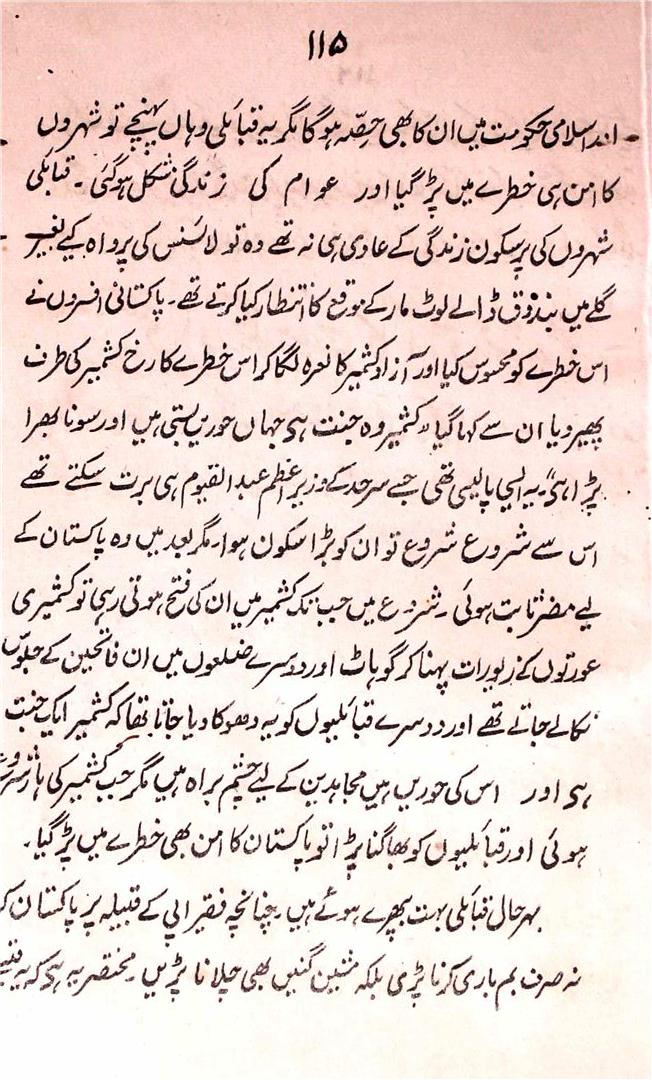 ۱۱۵
اند اسلامی حکومت میں ان کا بھی حصّہ ہوگا مگر یہ قبائلی وہاں پہنچے تو شہروں
کا امن ہی خطرے میں پڑ گیا اور عوام کی زندگی مشکل ہوگئی ۔ قبائلی
شہروں کی پرسکون زندگی کے عادی ہی نہ تھے وہ تو لائسنس کی پرواہ کیے بغیر
گلے میں بندوق ڈالے لوٹ مار کے موقع کا انتظار کیا کرتے تھے ۔ پاکستانی افسروں نے
اس خطرے کو محسوس کیا اور آزاد کشمیر کا نعرہ لگا کر اس خطرے کا رخ کشمیر کی طرف
پھیر دیا ان سے کہا گیا "کشمیر وہ جنت ہی جہاں حوریں بستی ہیں اور سونا بھرا
پڑا ہی"۔ یہ ایسی پالیسی تھی جسے سرحد کے وزیر اعظم عبدالقیوم ہی برت سکتے تھے
اس سے شروع شروع تو ان کو بڑا سکون ہوا۔ مگر بعد میں وہ پاکستان کے
لیے مضر ثابت ہوئی ۔ شروع میں جب تک کشمیر میں ان کی فتح ہوتی رہی تو کشمیری
عورتوں کے زیورات پہنا کر کوہاٹ اور دوسرے ضلعوں میں ان فاتحین کے جلوس
نکالے جاتے تھے اور دوسرے قبائلیوں کو یہ دھوکا دیا جاتا تھا کہ کشمیر ایک جنت
ہی اور اس کی حوریں ہیں مجاہدین کے لیے چشم براہ ہیں مگر جب کشمیر کی ہار شروع
ہوئی اور قبائلیوں کو بھاگنا پڑا تو پاکستان کا امن بھی خطرے میں پڑ گیا ۔
بہرحال قبائلی بہت بپھرے ہوئے ہیں ۔ چنانچہ فقیر ایپی کے قبیلہ پر پاکستان کو
نہ صرف بم باری کرنا پڑی بلکہ مشین گنیں بھی چلانا پڑیں ۔ مختصر یہ ہی کہ یہ